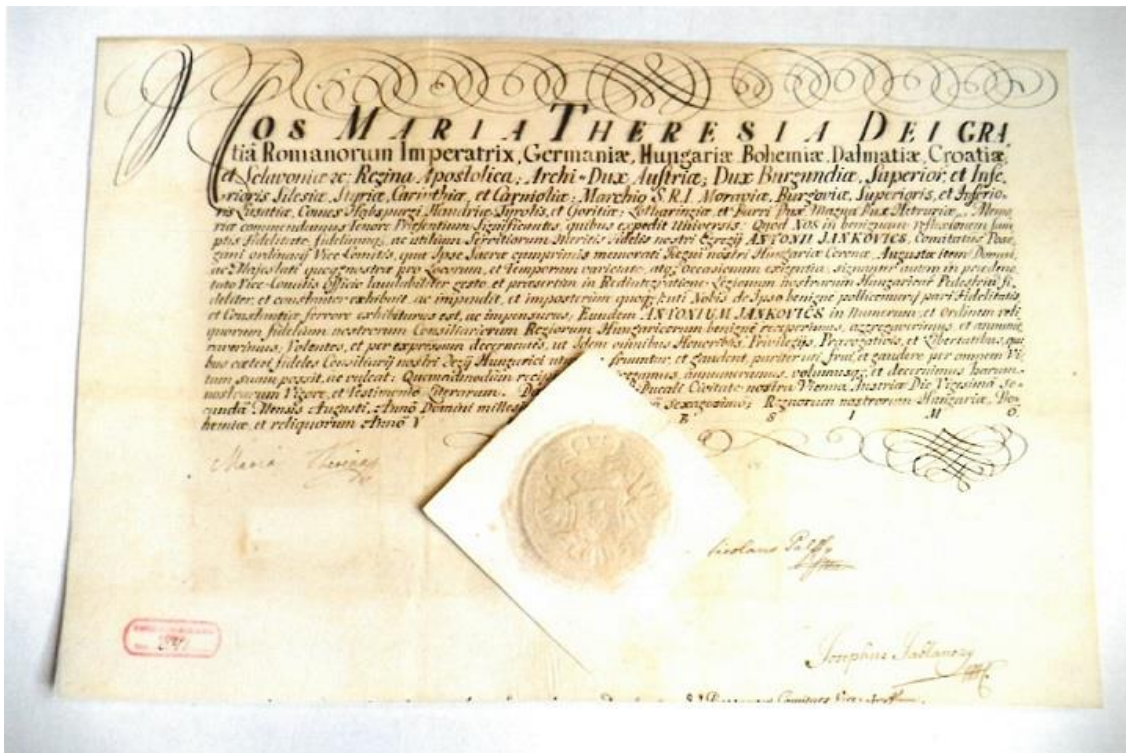 NOS MARIA THERESIA DEI GRA
tiâ Romanorum Imperatrix, Germaniæ, Hungariæ Bohemiæ, Dalmatiæ, Croatiæ,
et Sclavoniæ &c: Regina Apostolica; Archi-Dux Austriæ; Dux Burgundiæ, Superior, et Infe
rioris Silesiæ, Styriæ, Carinthiæ, et Carnioliæ; Marchio S.R.I. Moraviæ, Burgoviæ, Superioris, et Inferio
ris Lusatiæ, Comes Habspurgi, Flandriæ, Tyrolis, et Goritiæ; Lotharingiæ, et Barri Dux, Magna Dux Hetruriæ, Memo
riæ commendamus tenore Præsentium Significantes, quibus expedit Universis: Quod NOS in benignam reflexionem sum
ptis fidelitate, fidelium, ac utilium Servitiorum Meritis Fidelis nostri Egregij ANTONII JANKOVICS, Comitatus Pose
gani ordinarij Vice-Comitis, quæ Ipse Sacræ cumprimis memorati Regni nostri Hungariæ Coronæ, Augustæ item Domui,
ac Majestati quoque nostræ pro Locorum, et Temporum varietate, atq; occasionum exigentia, signanter autem in prædecla
rato Vice-Comitis Officio laudabiliter gesto, et præsertim in Redintegratione Legionum nostrarum Hungaricar: Pedestrium fi
deliter, et constanter exhibuit, ac impendit, et imposterum quoq; uti Nobis de Ipso benigne pollicemur, pari Fidelitatis,
et Constantiæ fervore exhibiturus est, ac impensurus; Eundem ANTONIUM JANKOVICS in Numerum, et Ordinem reli
quorum fidelium nostrorum Consiliariorum Regiorum Hungaricorum benigne recipimus, aggregaverimus, et annume
raverimus, Volentes, et per expressum decernentes, ut Idem omnibus Honoribus, Privilegijs, Prærogativis, et Libertatibus, qui
bus cæteri fideles Consiliarij nostri Regij Hungarici fruuntur, et gaudent, pariter uti, frui, et gaudere per omnem Vi
tam suam possit, ac valeat; Quemadmodum annumeramus, volumusq; et decernimus harum
nostrarum Vigore, et Testimonio Literarum. Ducali Civitate nostra Vienna, Austriæ Die Vigesima se
cunda Mensis Augusti, Anno Domini Sexagesimo; Regnorum nostrorum Hungariæ, Bo
hemiæ, et reliquorum Anno E S I M O
Maria Theresia
Nicolaus Palffy
Josephus Jablanczy